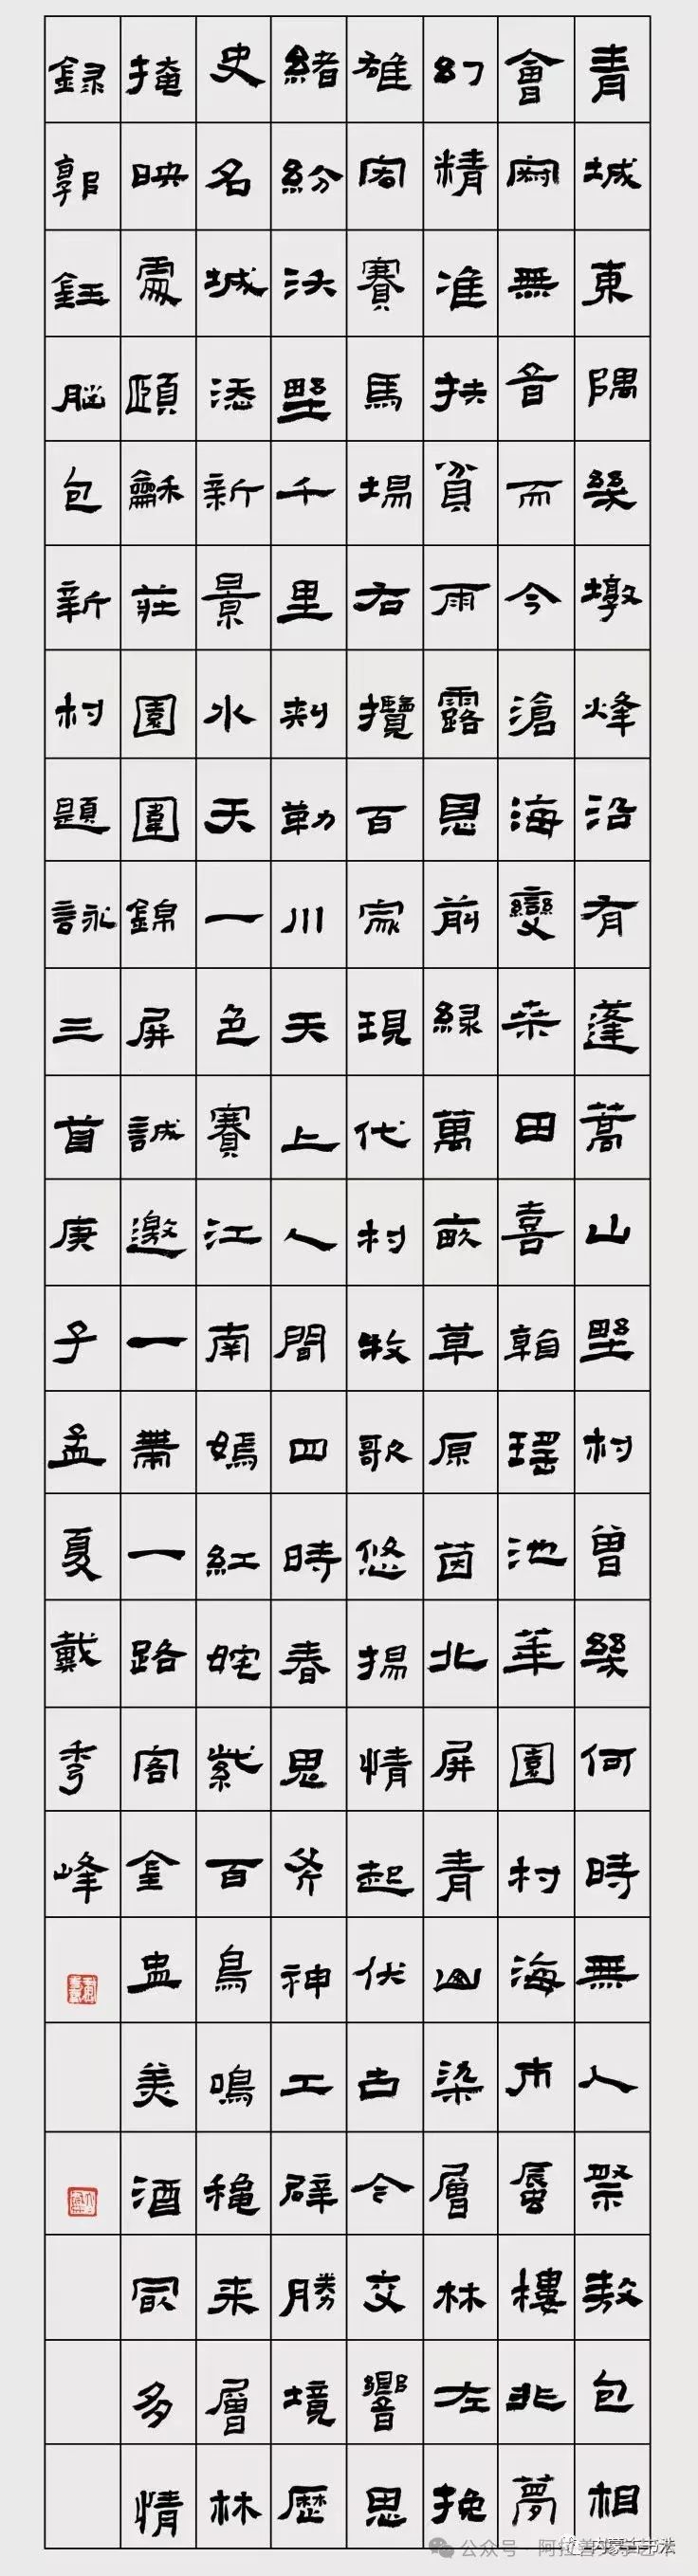 青城東隅幾墩烽沿有蓬蒿山野村曾幾何時無人祭敖包相
會寂無音而今滄海變桑田喜翰瑤池華園村海市蜃樓非夢
幻精准扶貧雨露恩前綠萬畝草原茵北屏青山染層林左挽
雄閣賽馬場右攬百家現代村牧歌悠揚情起伏古今交響思
緒紛沃野千里敕勒川天上人間四時春思斧神工辟勝境歷
史名城添新景水天一色賽江南嫣紅姹紫百鳥鳴穐来層林
掩映處頤龢莊園圍錦屏誠邀一帶一路客金盅美酒最多情
錄郭鈺腦包新村題詠三首庚子孟夏戴秀峰
公众号·阿拉善
内蒙古书法